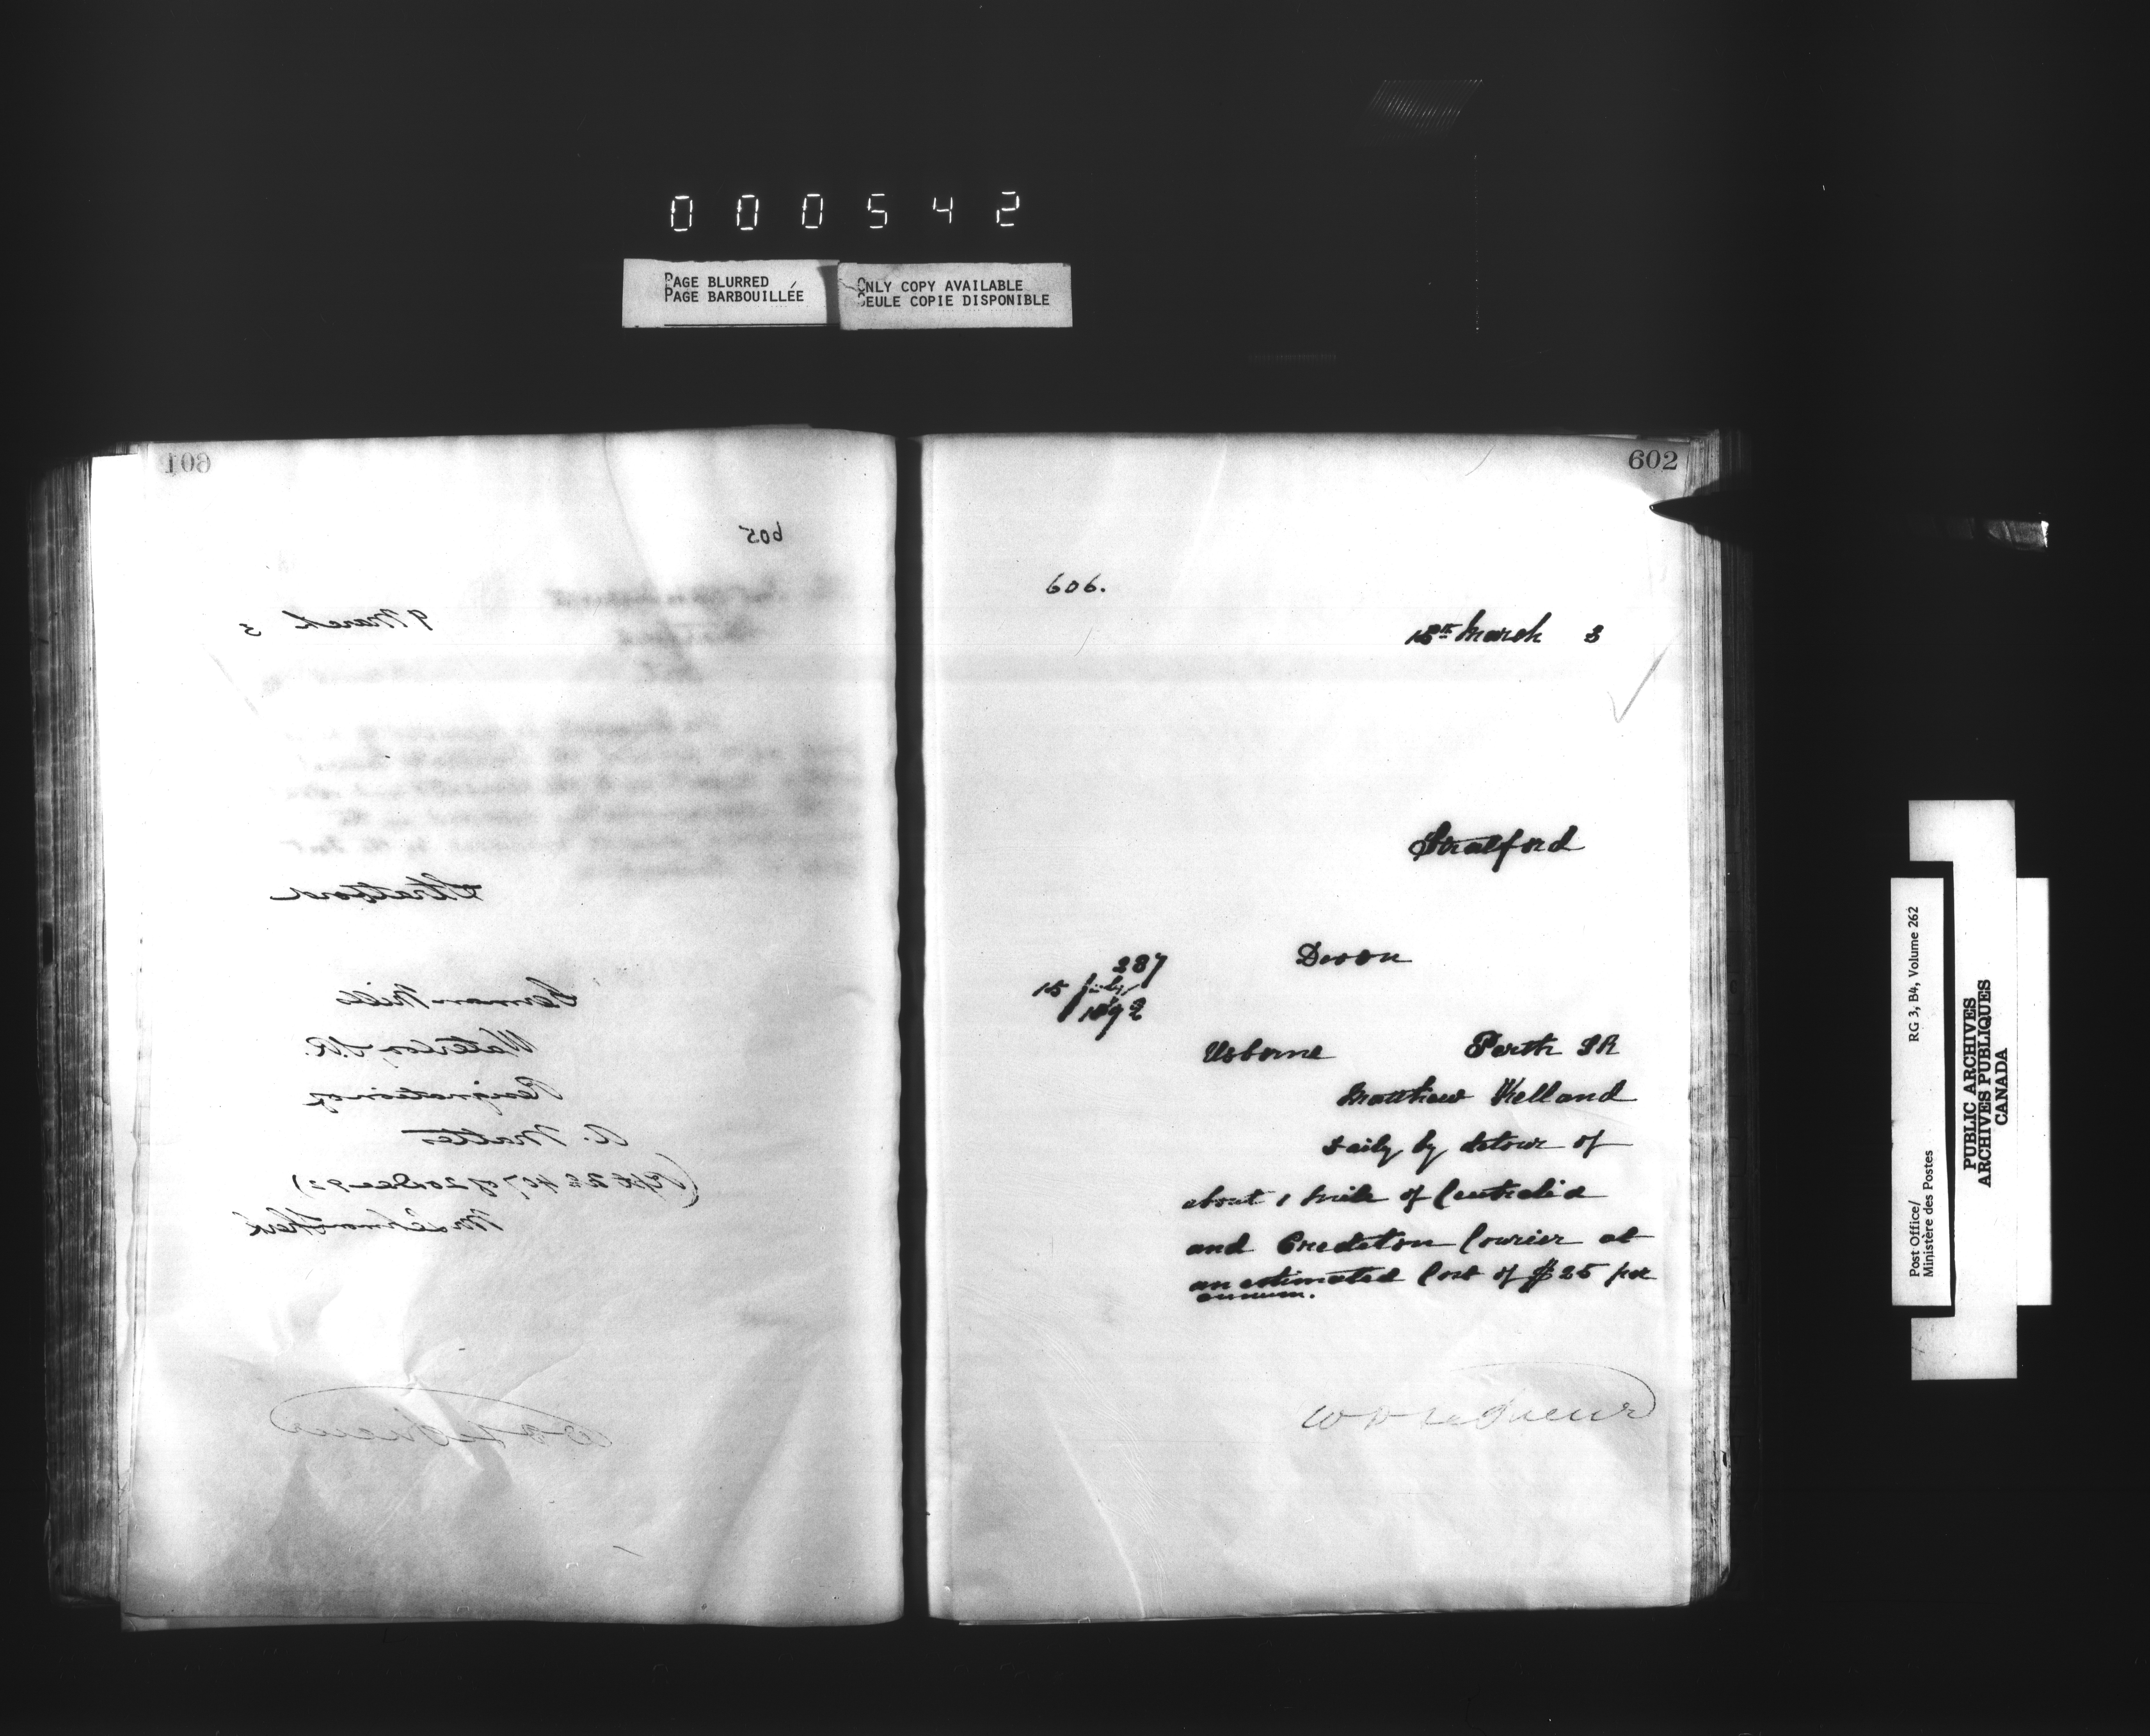 0 0 0 5 4 2
PAGE BLURRED
PAGE BARBOUILLÉE
ONLY COPY AVAILABLE
SEULE COPIE DISPONIBLE
601
605
9 March 3
Stratford
German Mills
Waterloo S.R.
Resignation of
A. Matter
(Rept No 407 of 20 Dec 92)
602
606.
March 3
Stratford
287
15 July
1892
Devon
Usborne Perth SR
Matthew Kelland
Daily by detour of
about 1 mile of Centralia
and Crediton Courier at
an estimated Cost of $25 per
annum.
Post Office/
Ministère des Postes
RG 3, B4, Volume 262
PUBLIC ARCHIVES
ARCHIVES PUBLIQUES
CANADA